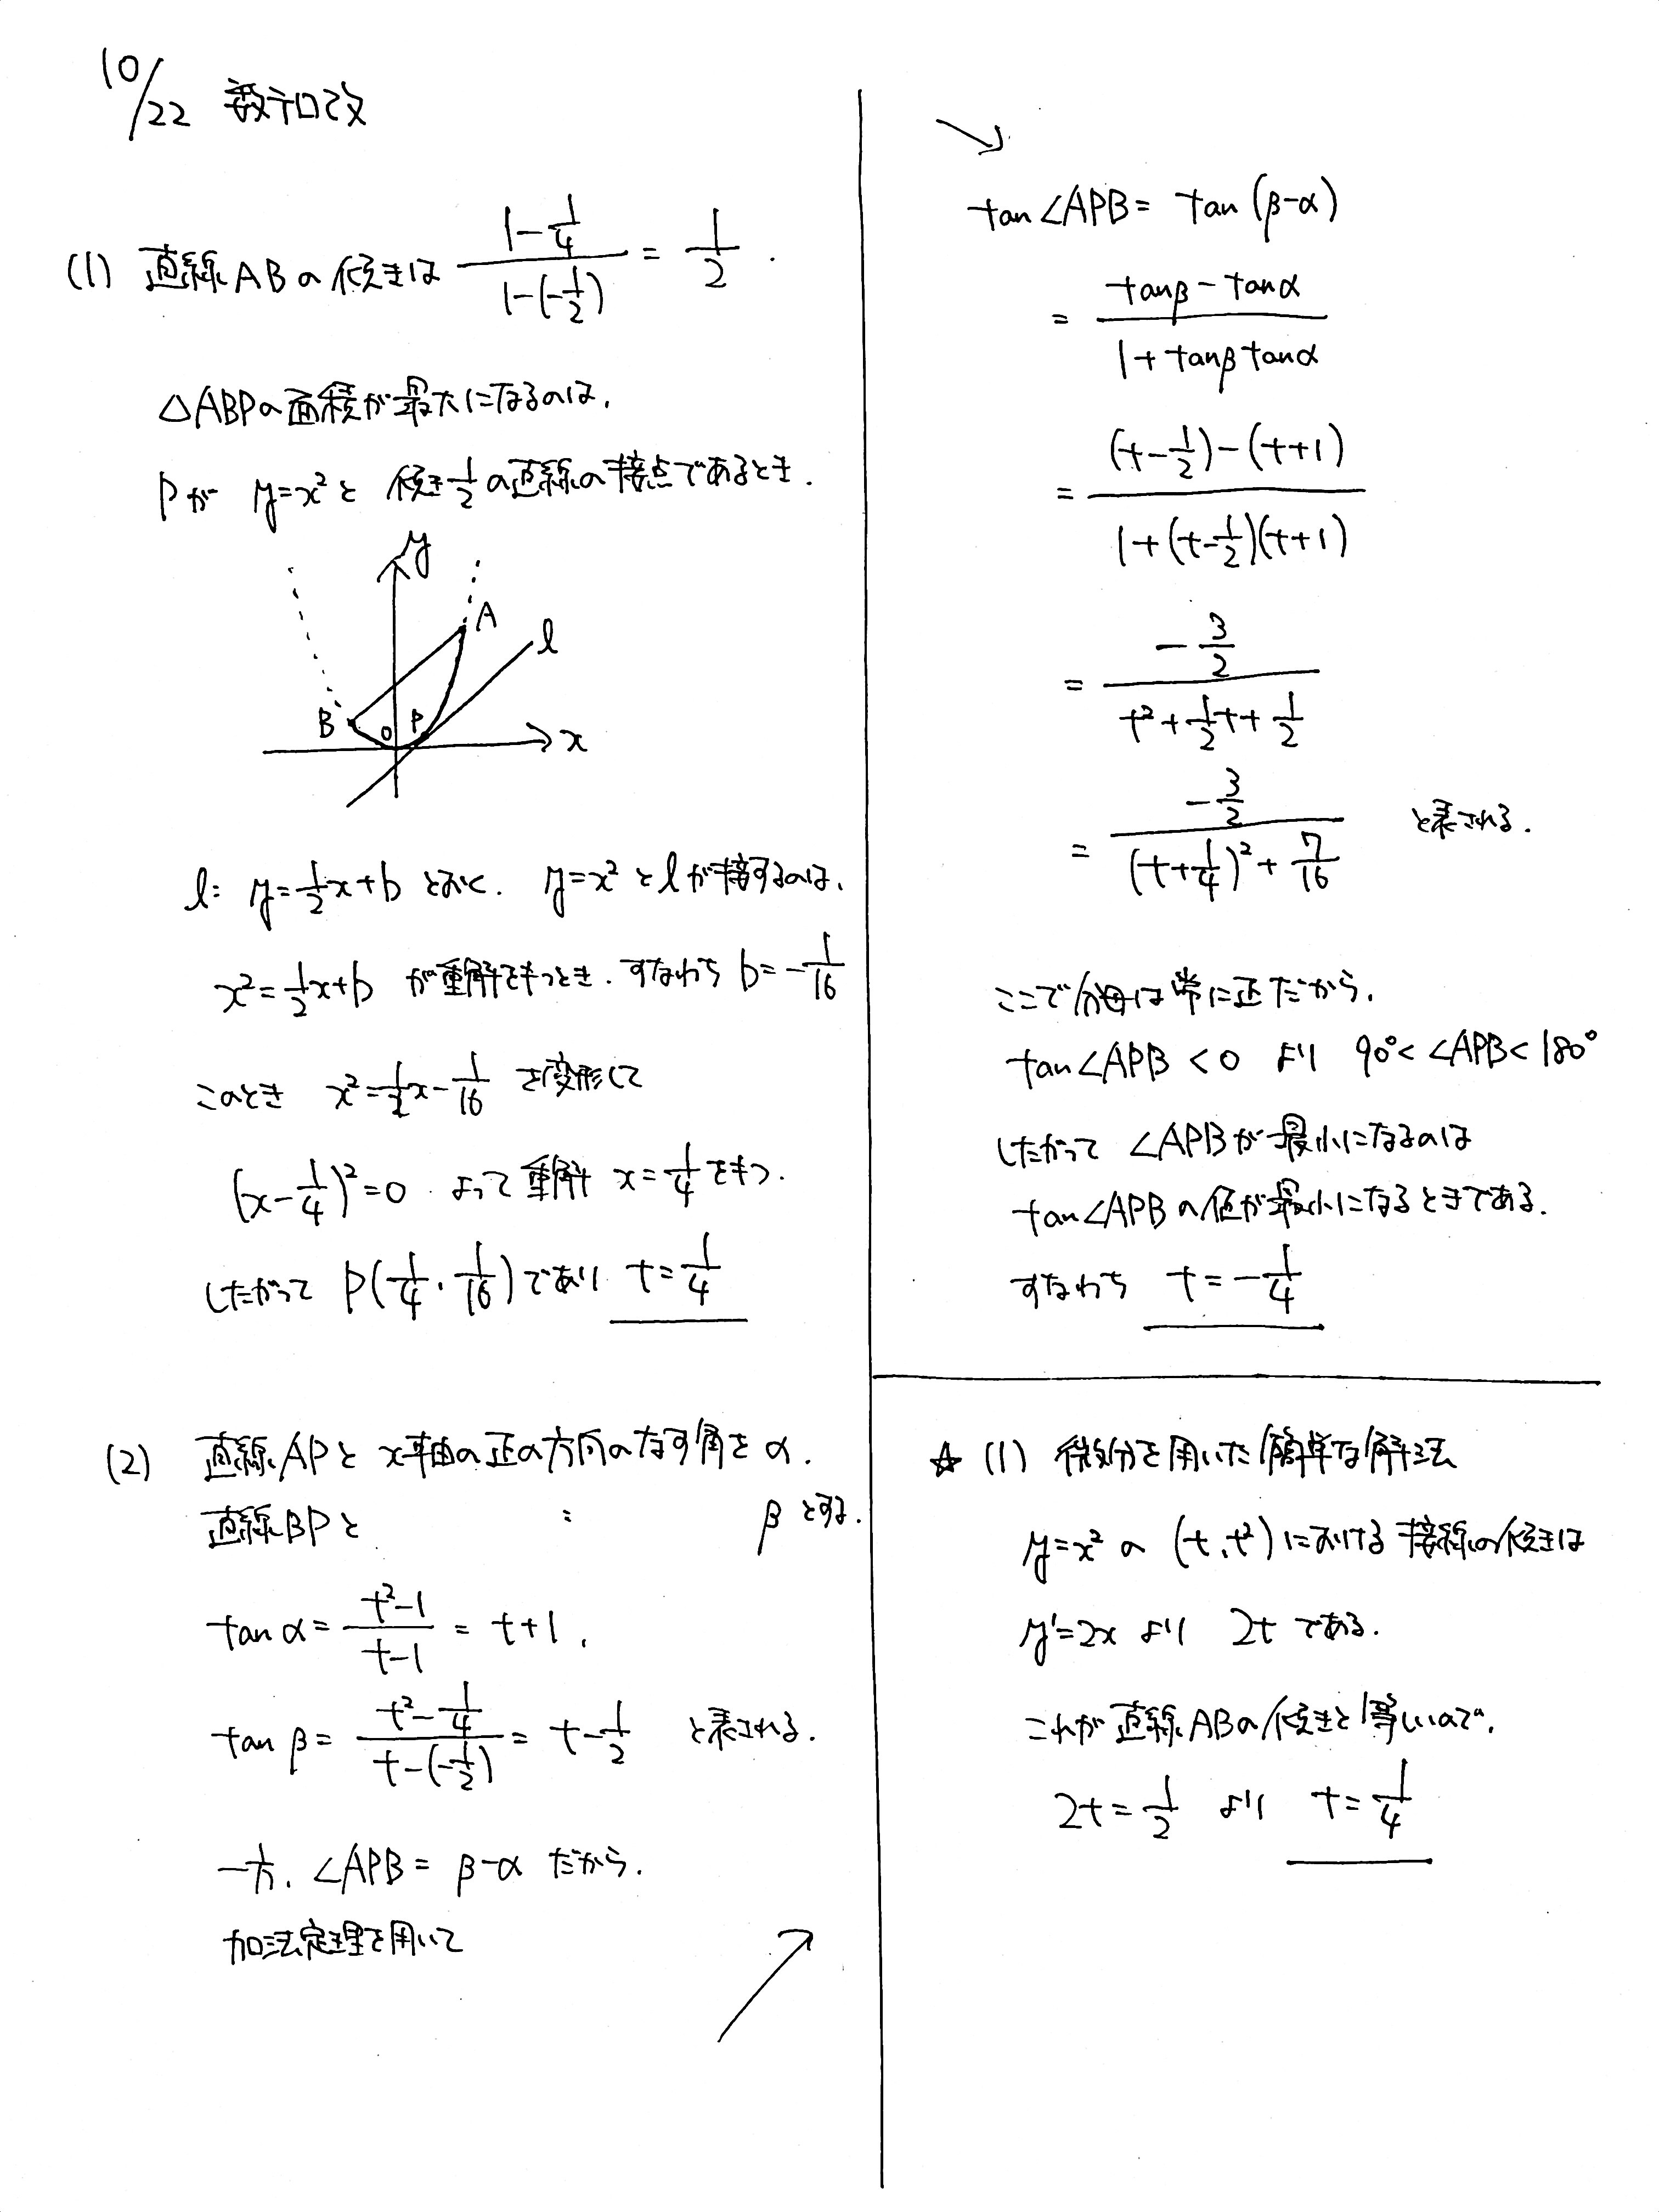 10/22 数テロ改
(1) 直線ABの傾きは (1-1/4)/(1-(-1/2)) = 1/2 .
△ABPの面積が最大になるのは,
Pが y=x² と 傾き1/2の直線の接点であるとき.
y
A
l
B
O
P
x
l: y=1/2x+b とおく. y=x² とlが接するのは,
x²=1/2x+b が重解をもつとき. すなわち b=-1/16
このとき x²=1/2x-1/16 を変形して
(x-1/4)²=0 よって重解 x=1/4 をもつ.
したがって P(1/4, 1/16) であり t=1/4
(2) 直線APと x軸の正の方向のなす角を α.
直線BPと 〃 β とする.
tan α = (t²-1)/(t-1) = t+1 ,
tan β = (t²-1/4)/(t-(-1/2)) = t-1/2 と表される.
一方, ∠APB = β-α だから,
加法定理を用いて
↗
↘
tan∠APB = tan(β-α)
= (tanβ-tanα)/(1+tanβtanα)
= ((t-1/2)-(t+1))/(1+(t-1/2)(t+1))
= (-3/2)/(t²+1/2t+1/2)
= (-3/2)/((t+1/4)²+7/16) と表される.
ここで分母は常に正だから,
tan∠APB < 0 より 90°<∠APB<180°
したがって ∠APBが最小になるのは
tan∠APBの値が最小になるときである.
すなわち t=-1/4
☆ (1) 微分を用いた簡単な解法
y=x² の (t, t²) における接線の傾きは
y'=2x より 2t である.
これが直線ABの傾きと等しいので,
2t=1/2 より t=1/4